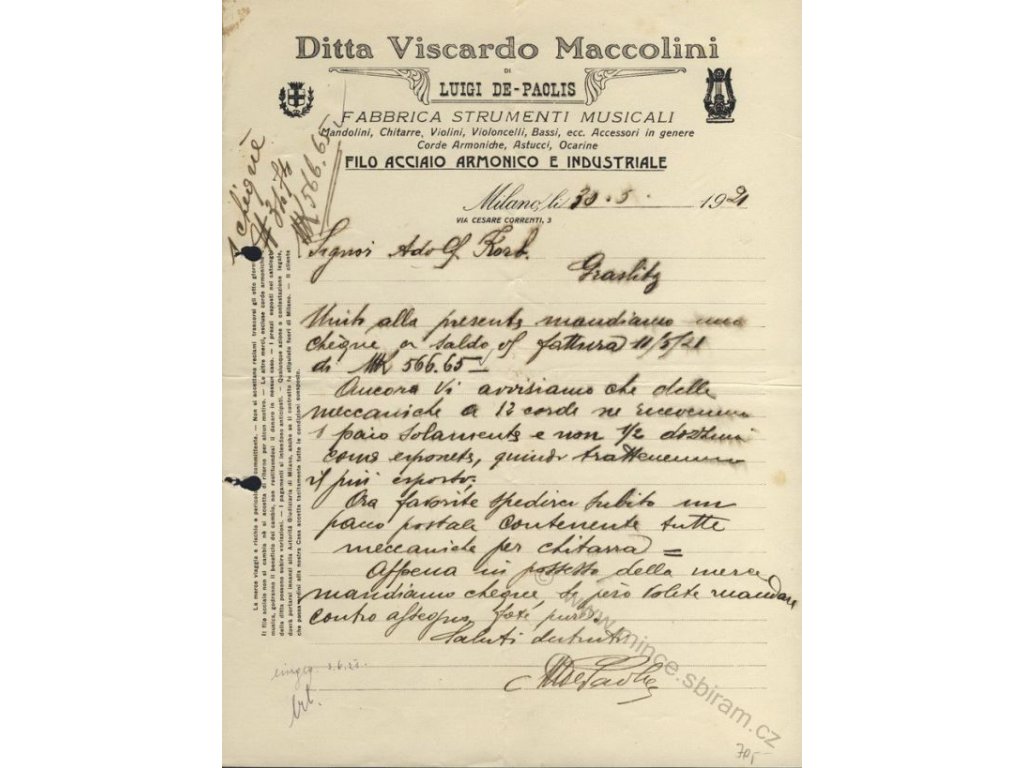 Ditta Viscardo Maccolini
DI
LUIGI DE-PAOLIS
FABBRICA STRUMENTI MUSICALI
Mandolini, Chitarre, Violini, Violoncelli, Bassi, ecc. Accessori in genere
Corde Armoniche, Astucci, Ocarine
FILO ACCIAIO ARMONICO E INDUSTRIALE
1 chèque
566.65
Milano, li 30 . 5 . 1921
VIA CESARE CORRENTI, 3
Signor Adolf
Graslitz
Unito alla presente mandiamo uno
chèque a saldo fattura 11/5/21
di 566.65
Ancora Vi avvisiamo che delle
meccaniche a 12 corde ne
1 paio solamente e non 1/2
come esponete, quindi
il più esposto.
Ora favorite spedirci subito un
pacco postale contenente tutte
meccaniche per chitarra =
Appena in possesso della merce
mandiamo chèque, se però volete mandare
contro assegno, fate pure.
Saluti distinti
La merce viaggia a rischio e pericolo del committente. — Non si accettano reclami trascorsi gli otto giorni
Il filo acciaio non si cambia nè si accetta di ritorno per alcun motivo. — Le altre merci, escluse corde armoniche
musica, godranno il beneficio del cambio, non restituendosi il danaro in nessun caso. — I prezzi esposti nel catalogo
della ditta possono subire variazioni. — I pagamenti si intendono anticipati. — Qualunque azione o contestazione legale,
dovrà portarsi innanzi alla Autorità Giudiziaria di Milano, anche se il contratto fu stipulato fuori di Milano. — Il cliente
che passa ordini alla nostra Casa accetta tacitamente tutte le condizioni suesposte.
© www.mince.sbiram.cz
70,-